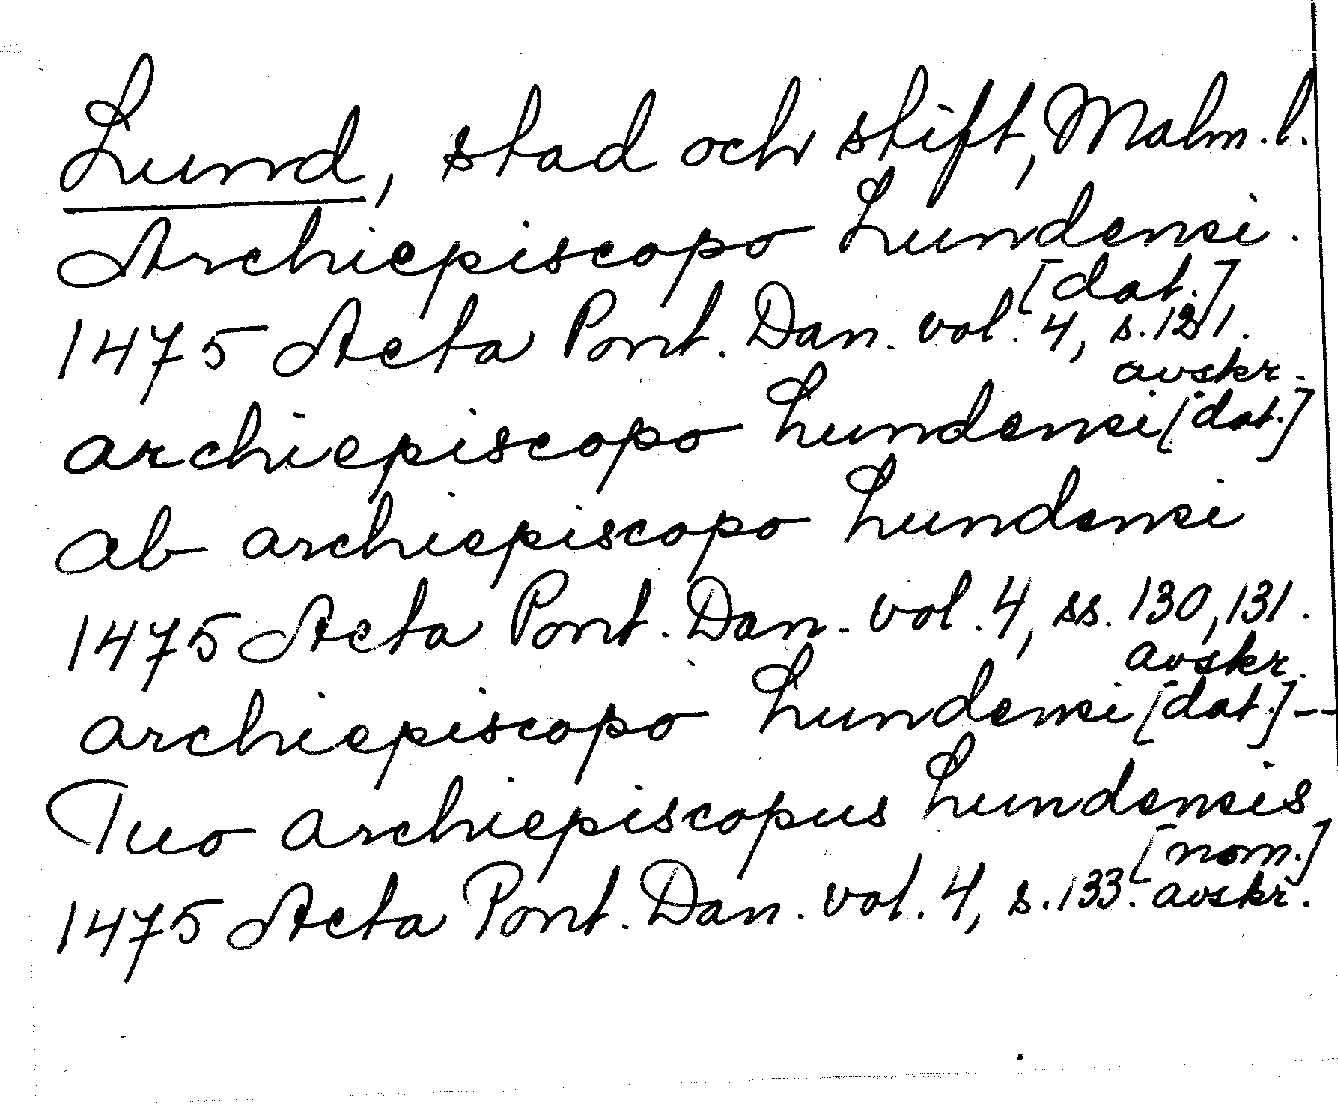 Lund, stad och stift, Malm. l.
Archiepiscopo Lundensi.
[dat.]
1475 Acta Pont. Dan. vol. 4, s. 121.
avskr.
archiepiscopo Lundensi [dat.]
ab archiepiscopo Lundensi
1475 Acta Pont. Dan. vol. 4, ss. 130, 131.
avskr.
archiepiscopo Lundensi [dat.] --
Tuo archiepiscopus Lundensis
[nom.]
1475 Acta Pont. Dan. vol. 4, s. 133. avskr.